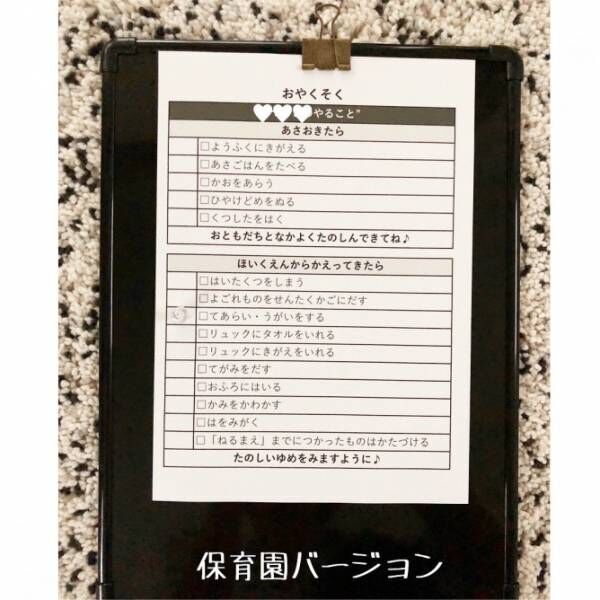 おやくそく
やること”
あさおきたら
□ようふくにきがえる
□あさごはんをたべる
□かおをあらう
□ひやけどめをぬる
□くつしたをはく
おともだちとなかよくたのしんできてね♪
ほいくえんからかえってきたら
□はいたくつをしまう
□よごれものをせんたくかごにだす
□てあらい・うがいをする
□リュックにタオルをいれる
□リュックにきがえをいれる
□てがみをだす
□おふろにはいる
□かみをかわかす
□はをみがく
□「ねるまえ」までにつかったものはかたづける
たのしいゆめをみますように♪
保育園バージョン